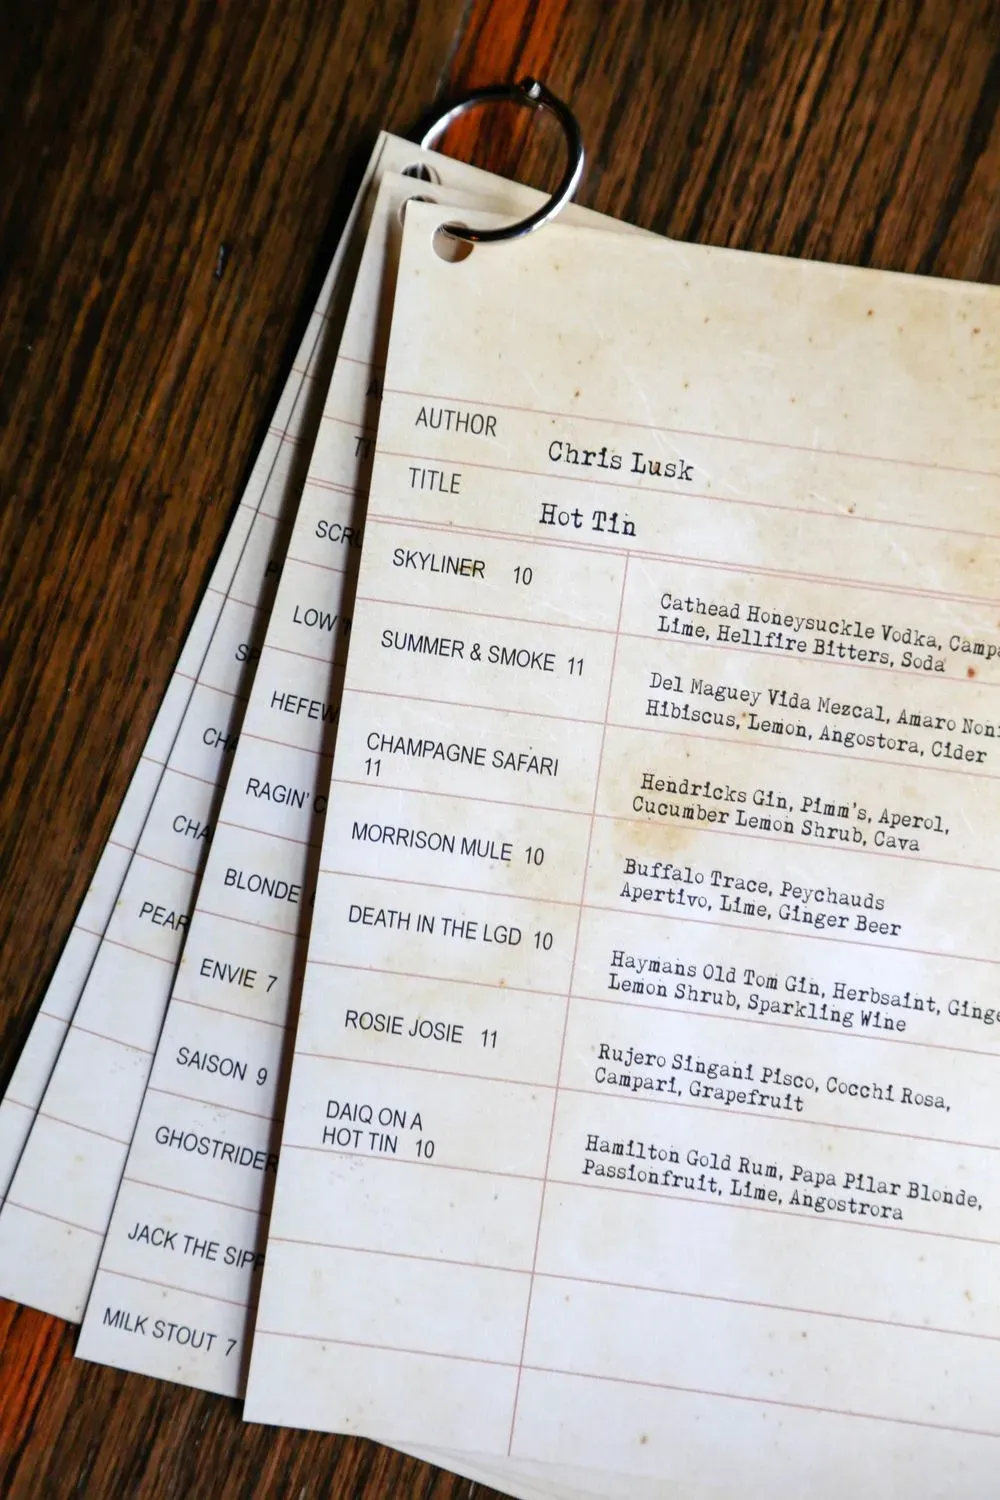 AUTHOR Chris Lusk
TITLE Hot Tin
SKYLINER 10
Cathead Honeysuckle Vodka,
Lime, Hellfire Bitters, Soda
SUMMER & SMOKE 11
Del Maguey Vida Mezcal, Amaro
Hibiscus, Lemon, Angostora, Cider
CHAMPAGNE SAFARI
11
Hendricks Gin, Pimm's, Aperol,
Cucumber Lemon Shrub, Cava
MORRISON MULE 10
Buffalo Trace, Peychauds
Apertivo, Lime, Ginger Beer
DEATH IN THE LGD 10
Haymans Old Tom Gin, Herbsaint,
Lemon Shrub, Sparkling Wine
ROSIE JOSIE 11
Rujero Singani Pisco, Cocchi Rosa,
Campari, Grapefruit
DAIQ ON A
HOT TIN 10
Hamilton Gold Rum, Papa Pilar Blonde,
Passionfruit, Lime, Angostrora
LOW
RAGIN'
BLONDE
ENVIE 7
SAISON 9
GHOSTRIDER
JACK THE
MILK STOUT 7